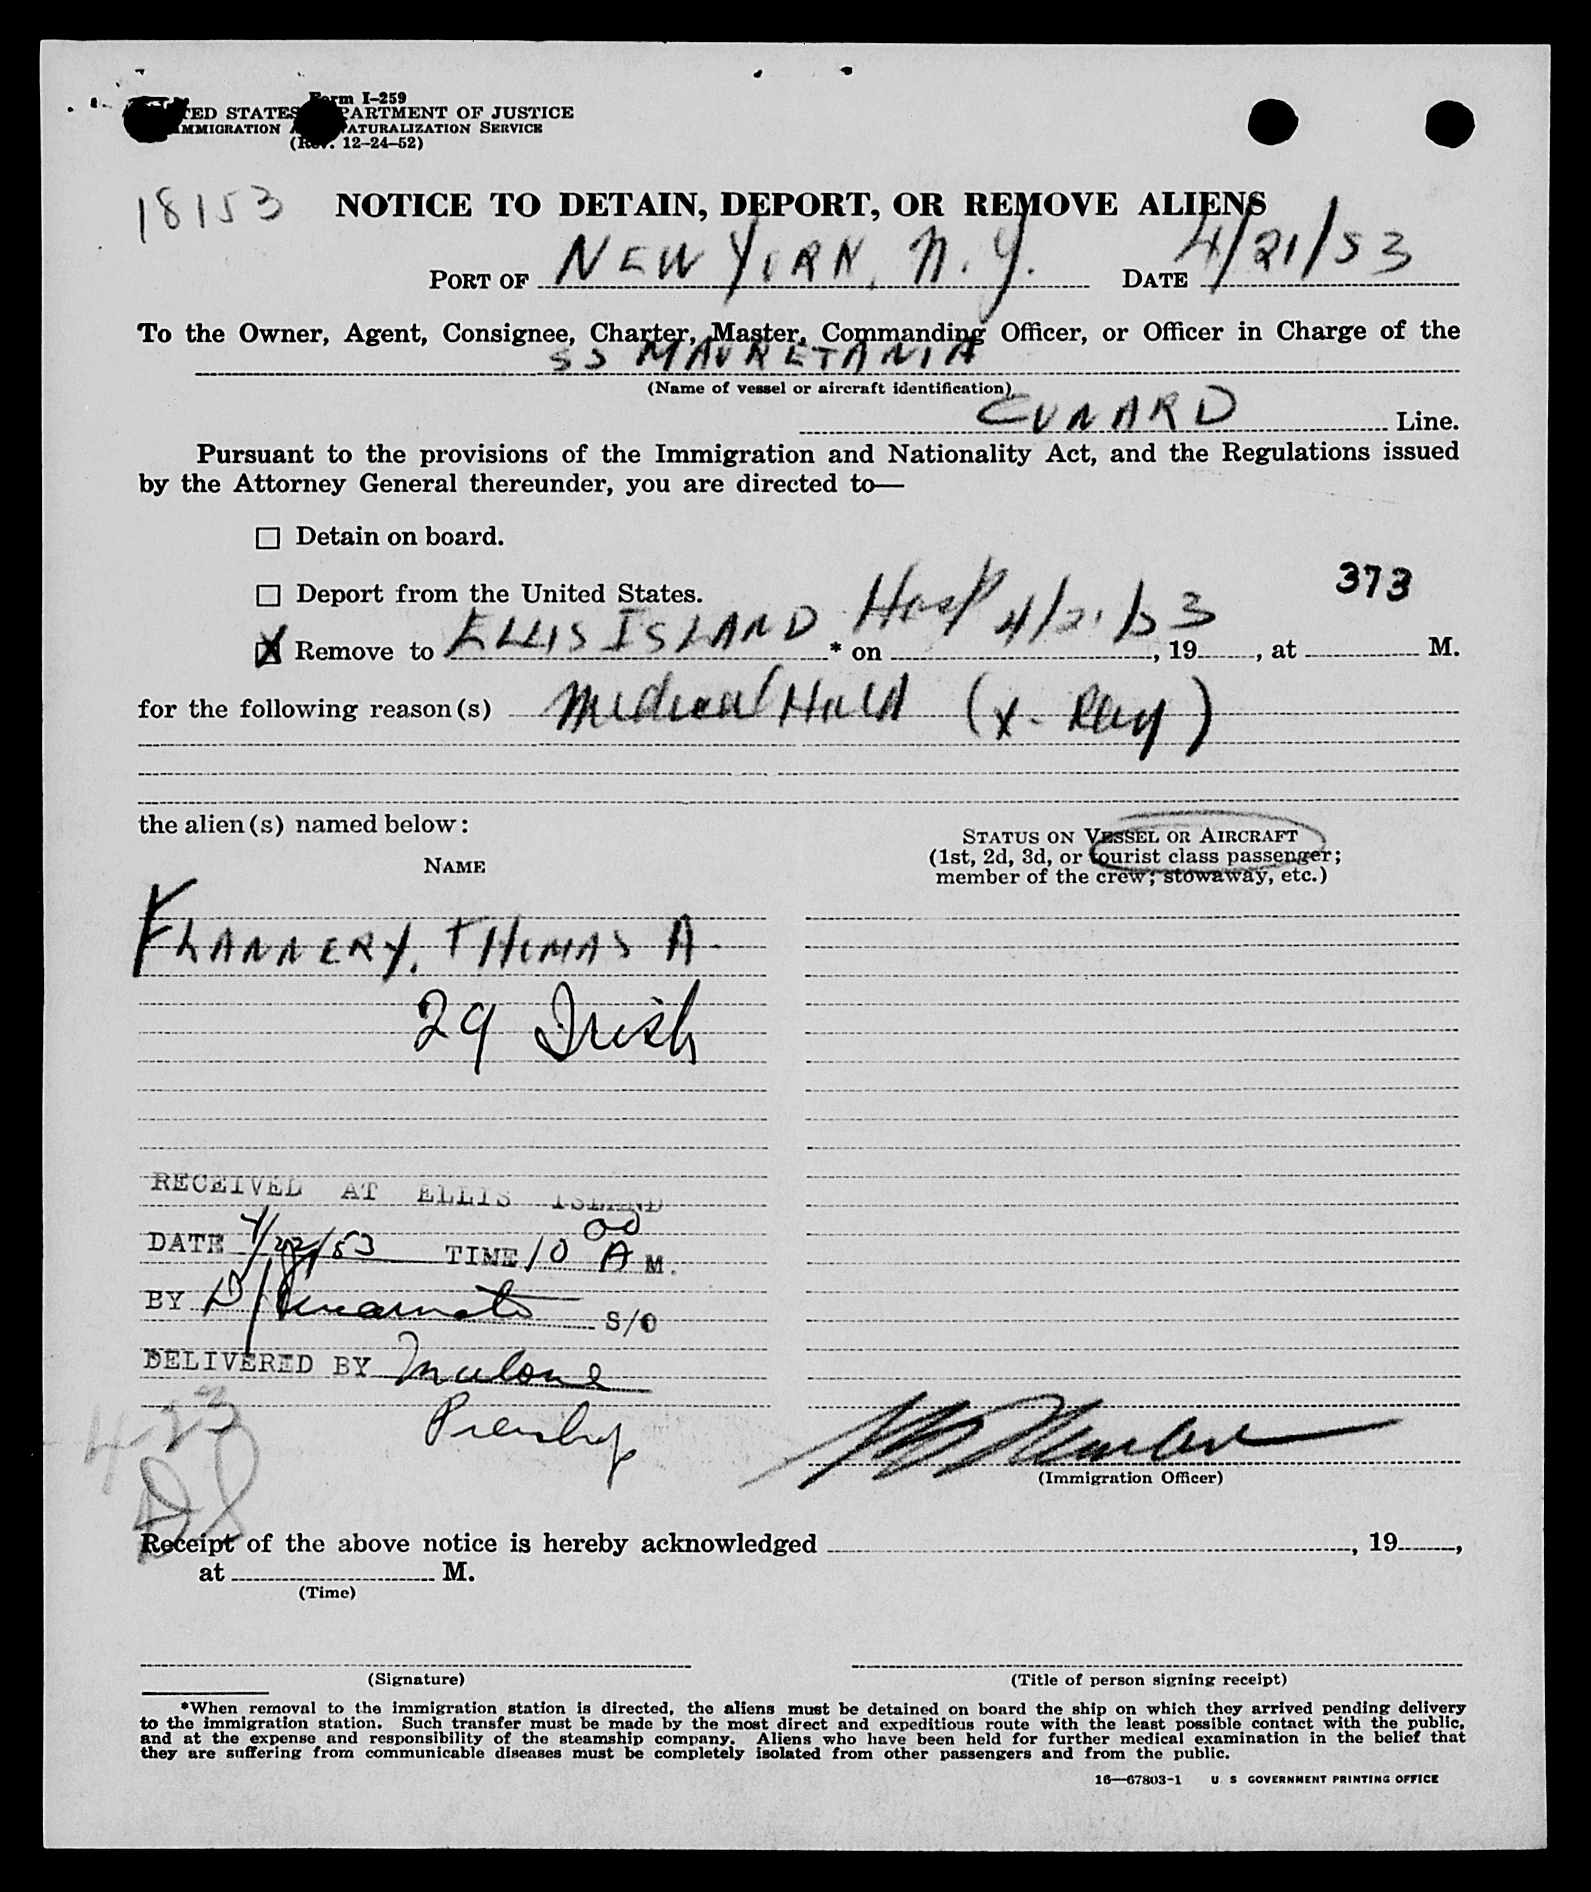 Form I-259
UNITED STATES DEPARTMENT OF JUSTICE
IMMIGRATION AND NATURALIZATION SERVICE
(Rev. 12-24-52)
18153
NOTICE TO DETAIN, DEPORT, OR REMOVE ALIENS
PORT OF NEW YORK, N.Y. DATE 4/21/53
To the Owner, Agent, Consignee, Charter, Master, Commanding Officer, or Officer in Charge of the
SS MAURETANIA
(Name of vessel or aircraft identification)
CUNARD Line.
Pursuant to the provisions of the Immigration and Nationality Act, and the Regulations issued
by the Attorney General thereunder, you are directed to—
☐ Detain on board.
373
☐ Deport from the United States.
☒ Remove to ELLIS ISLAND Hosp * on 4/21/53, 19, at M.
for the following reason(s) Medical Hold (X-Ray)
the alien(s) named below:
STATUS ON VESSEL OR AIRCRAFT
(1st, 2d, 3d, or tourist class passenger;
member of the crew; stowaway, etc.)
NAME
FLANNERY, THOMAS A.
29 Irish
RECEIVED AT ELLIS ISLAND
DATE 4/22/53 TIME 10 00 A M.
BY S/O
DELIVERED BY Malone
4-23
(Immigration Officer)
Receipt of the above notice is hereby acknowledged , 19 ,
at M.
(Time)
(Signature)
(Title of person signing receipt)
*When removal to the immigration station is directed, the aliens must be detained on board the ship on which they arrived pending delivery
to the immigration station. Such transfer must be made by the most direct and expeditious route with the least possible contact with the public,
and at the expense and responsibility of the steamship company. Aliens who have been held for further medical examination in the belief that
they are suffering from communicable diseases must be completely isolated from other passengers and from the public.
16—67803-1 U S GOVERNMENT PRINTING OFFICE